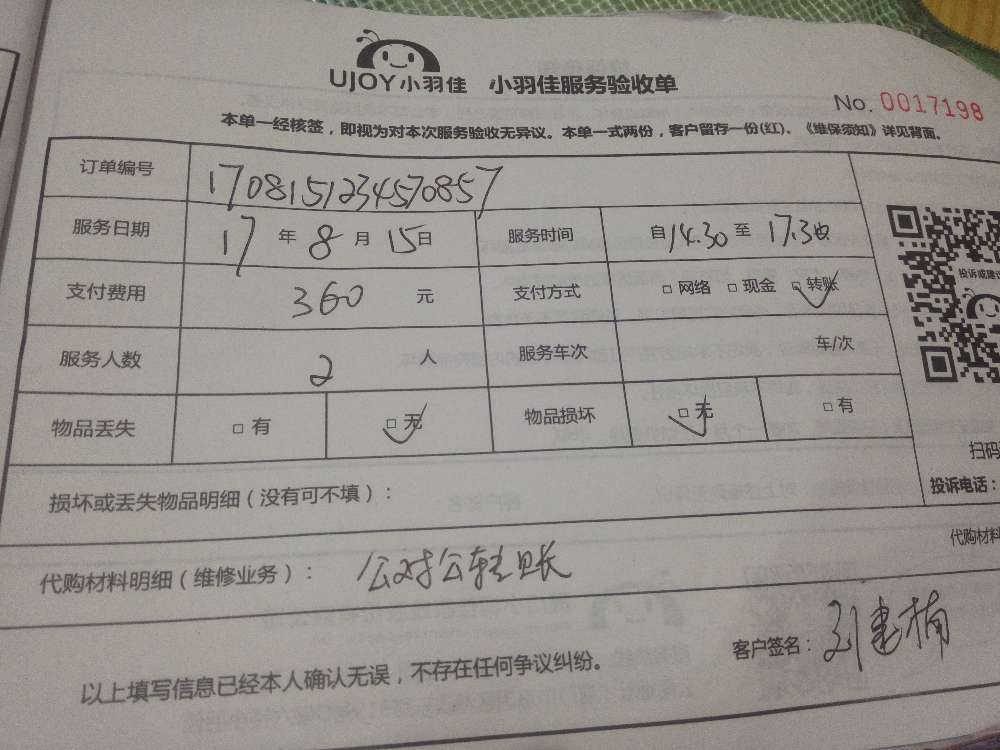 UJOY小羽佳 小羽佳服务验收单
No. 0017198
本单一经核签，即视为对本次服务验收无异议。本单一式两份，客户留存一份(红)、《维保须知》详见背面。
订单编号 170815123457085７
服务日期 17 年 8 月 15 日 服务时间 自 14.30 至 17.30
支付费用 360 元 支付方式 □ 网络 □ 现金 □ 转账
服务人数 2 人 服务车次 车/次
物品丢失 □ 有 □ 无 物品损坏 □ 无 □ 有
投诉或建议
扫码
投诉电话：
损坏或丢失物品明细（没有可不填）：
代购材料明细（维修业务）： 公对公转账
代购材料
以上填写信息已经本人确认无误，不存在任何争议纠纷。
客户签名： 刘建楠